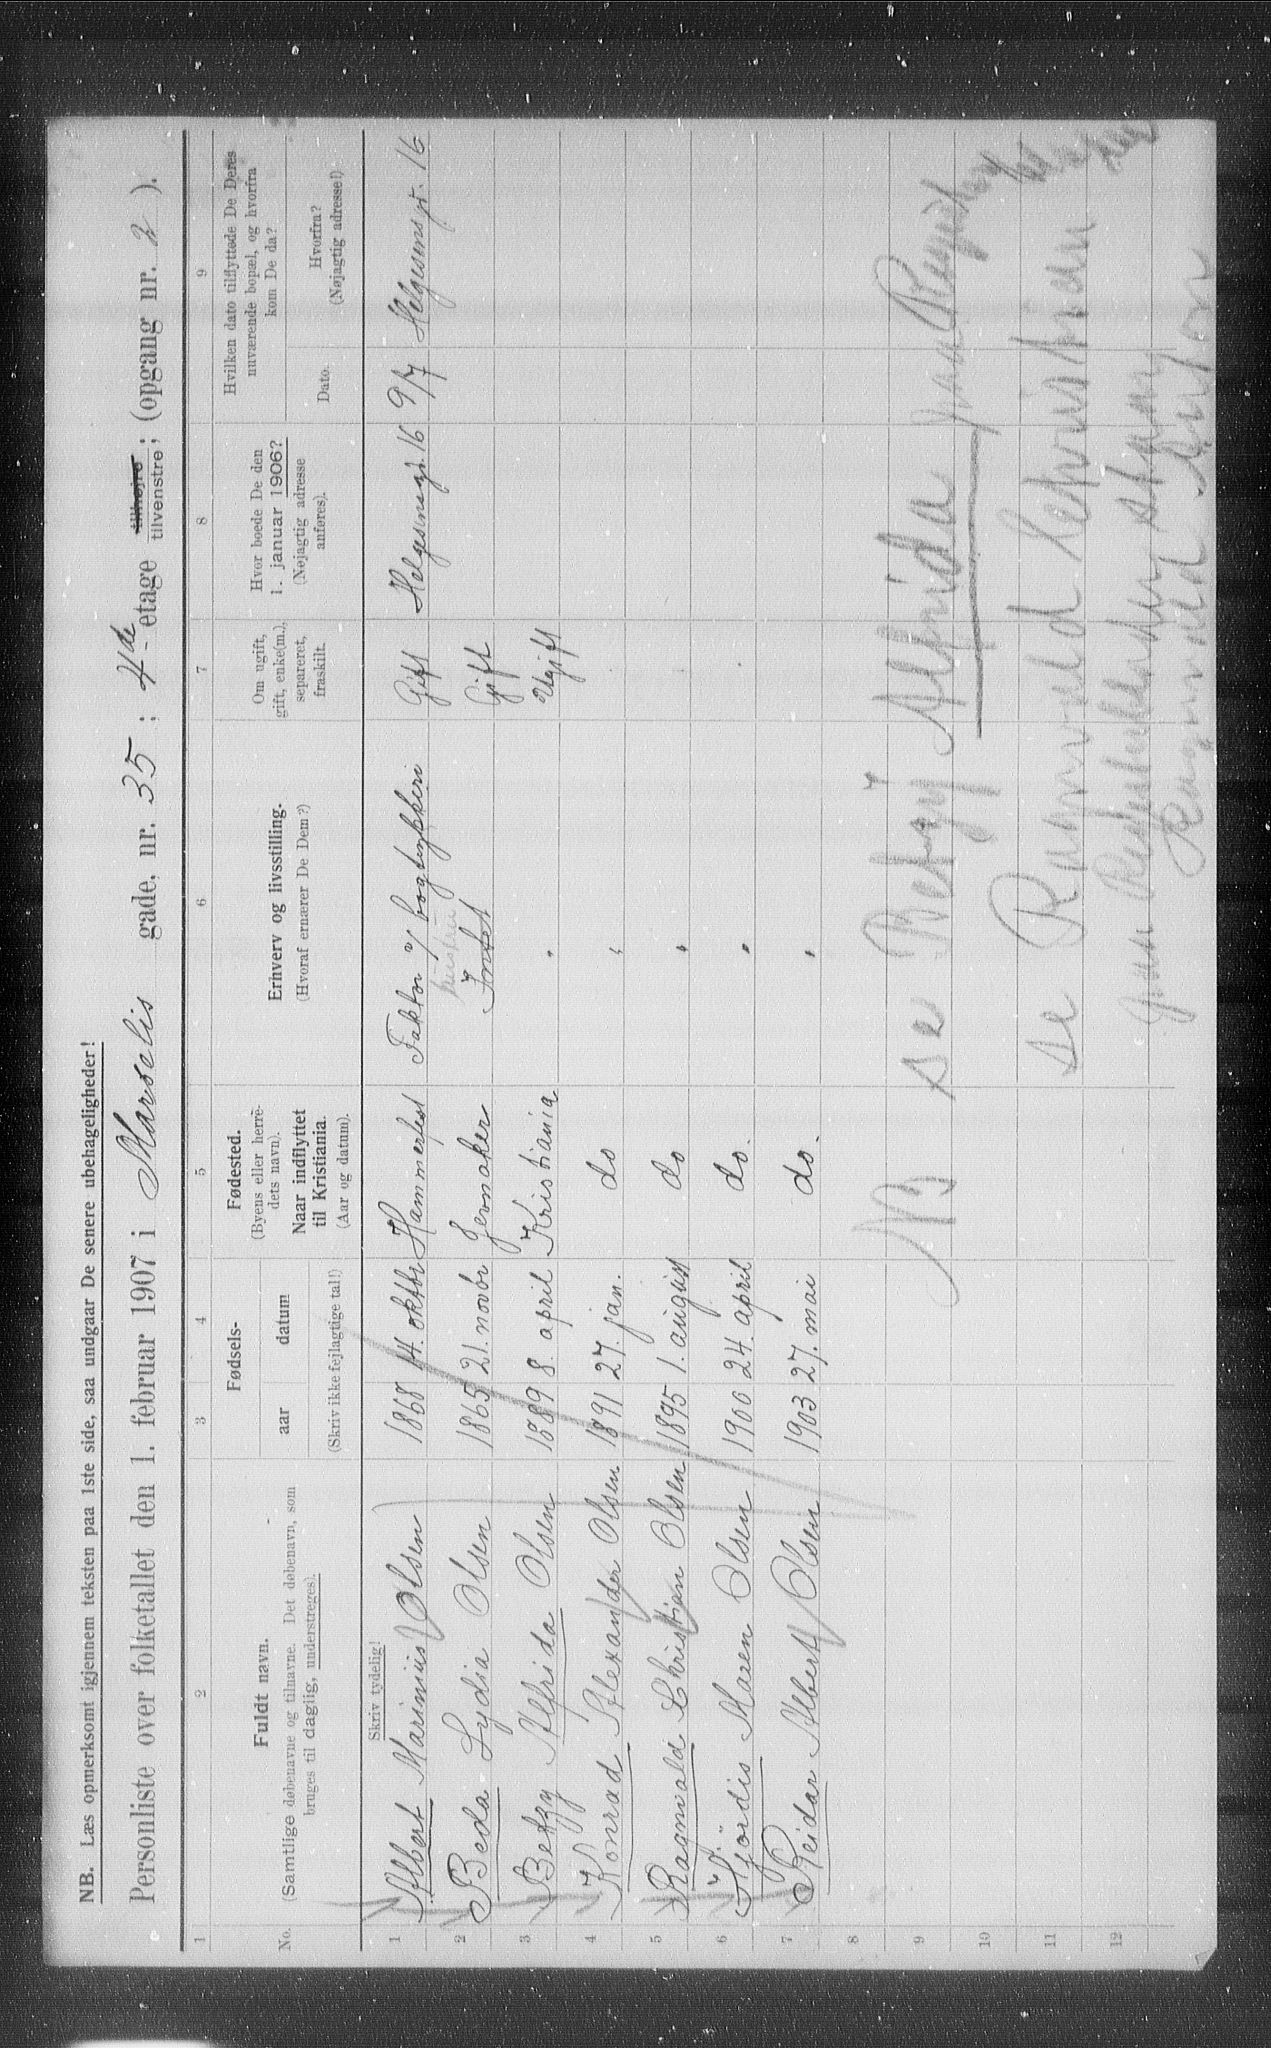 NB. Læs opmerksomt igjennem teksten paa 1ste side, saa undgaar De senere ubehageligheder!
Personliste over folketallet den 1. februar 1907 i Marselis gade, nr. 35 ; 4de etage tilhøjre tilvenstre; (opgang nr. 2 ).
1 2 3 4 5 6 7 8 9
No.
Fuldt navn.
(Samtlige døbenavne og tilnavne. Det døbenavn, som
bruges til daglig, understreges).
Fødsels-
aar datum
(Skriv ikke fejlagtige tal!)
Fødested.
(Byens eller herre-
dets navn).
Naar indflyttet
til Kristiania.
(Aar og datum).
Erhverv og livsstilling.
(Hvoraf ernærer De Dem?)
Om ugift,
gift, enke(m.),
separeret,
fraskilt.
Hvor boede De den
1. januar 1906?
(Nøjagtig adresse
anføres).
Hvilken dato tilflyttede De Deres
nuværende bopæl, og hvorfra
kom De da?
Dato.
Hvorfra?
(Nøjagtig adresse!)
Skriv tydelig!
1 Albert Marinius Olsen 1868 14. oktbr Hammerfest Faktor i bogtrykkeri Gift Helgesensgt. 16 9/7 Helgesens gt. 16
hustru
2 Beda Lydia Olsen 1865 21. novbr Jevnaker Intet Gift
3 Betzy Alfrida Olsen 1889 8. april Kristiania " Ugift
4 Konrad Alexander Olsen 1891 27. jan. do "
5 Ragnvald Christian Olsen 1895 1. august do "
6 Hjördis Maren Olsen 1900 24. april do. "
7 Reidar Albert Olsen 1903 27. mai do. "
8
9 NB se Betzy Alfrida
10
11 se Ragnvald Kristian
12